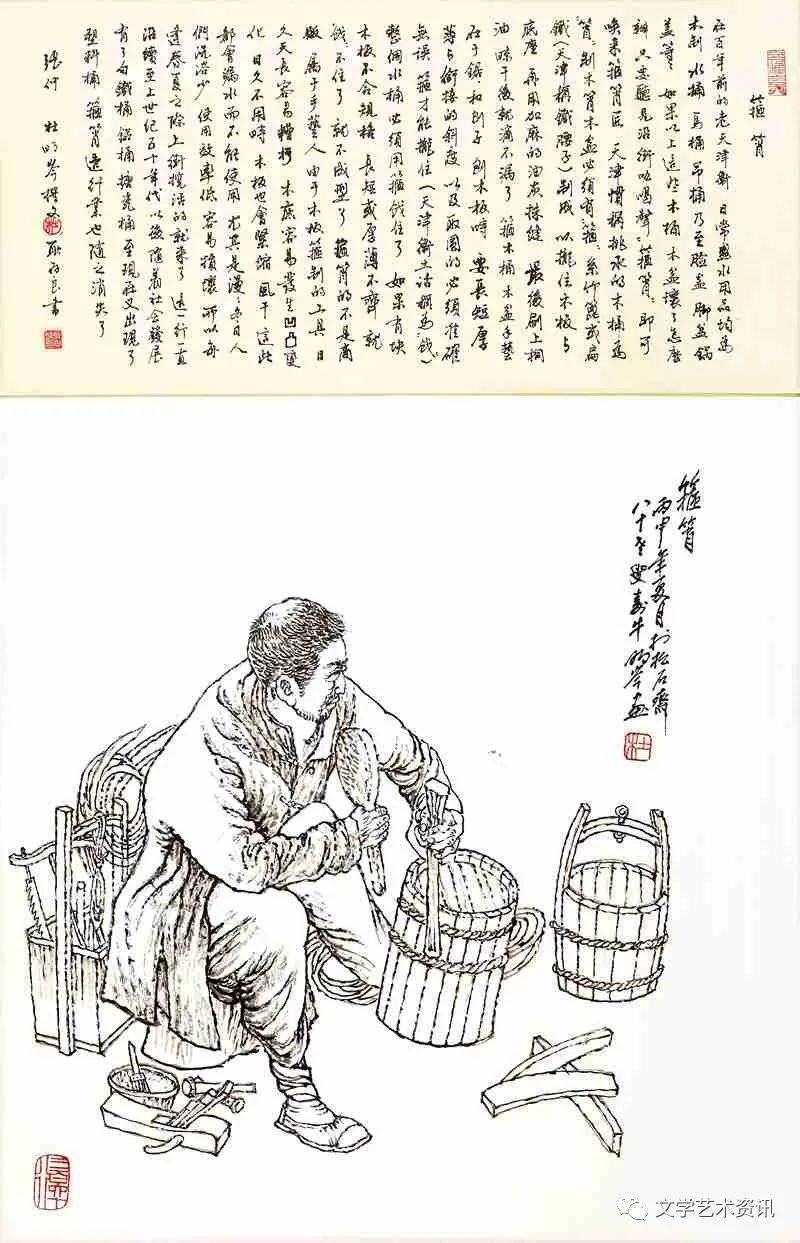 箍筲
在百年前的老天津衛 日常盛水用品均爲
木制 水桶 馬桶 吊桶乃至臉盆 脚盆 鍋
盖等 如果以上這些木桶 木盆壞了怎麽
辦 只要聽見沿街吆喝聲"箍筲"即可
唤来箍筲匠 天津慣稱挑水的木桶爲
"筲" 制木筲木盆必須有"箍" 系竹篾或扁
鐵(天津稱鐵腰子)制成 以攏住木板与
底座 再用加麻的油灰抹縫 最後刷上桐
油 晾干後就滴不漏了 箍木桶 木盆手藝
在于鋸和刨子 刨木板時 要長短厚
薄与銜接的斜度 以及取圆的必須准確
無误 箍才能攏住(天津衛土話稱爲"戗")
整個水桶必須用以箍戗住了 如果有块
木板不合規格 長短或厚薄不齊 就
戗不住了 就不成型了 箍筲的不是商
販 属于手藝人 由于木板箍制的工具 日
久天長容易糟朽 木底容易发生凹凸變
化 日久不用時 木板也會緊缩 風干 這些
都會漏水而不能使用 尤其是漫漫冬日人
們洗浴少 使用效率低 容易損壞 所以每
逢春夏之际上街攬活的就来了 這一行直
沿續至上世纪五十年代 以後随着社会發展
有了白鐵桶 鋁桶 搪瓷桶 至現在又出現了
塑料桶 箍筲這行業也随之消失了
張仲 杜明岑撰文 書
箍筲
丙申年夏月於松石齋
八十老叟 牛明岑畫
文学艺术资讯